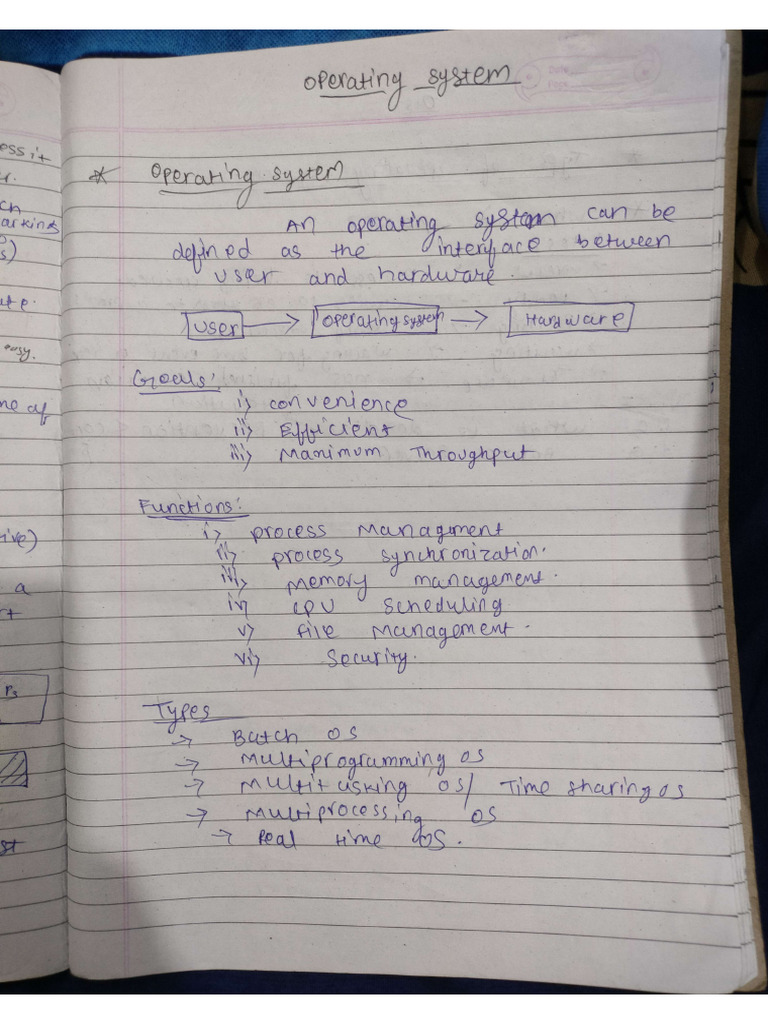 ess it
r.
ch
arkind
s)
ate.
easy.
me of
tive)
a
rt
P3
st
Operating system
Date
Page
* Operating system
An operating system can be
defined as the interface between
user and hardware.
User → Operating system → Hardware
Goals:
i) convenience
ii) Efficient
iii) Maximum Throughput
Functions:
i) process Managment
ii) process synchronization.
iii) Memory management.
iv) CPU scheduling
v) file Management.
vi) Security.
Types
→ Batch OS
→ Multiprogramming OS
→ Multitasking OS/ Time sharing OS
→ Multiprocessing OS
→ Real time OS.